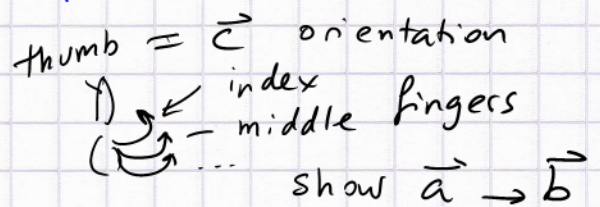 thumb = c⃗ orientation
index
middle fingers
...
show a⃗ → b⃗